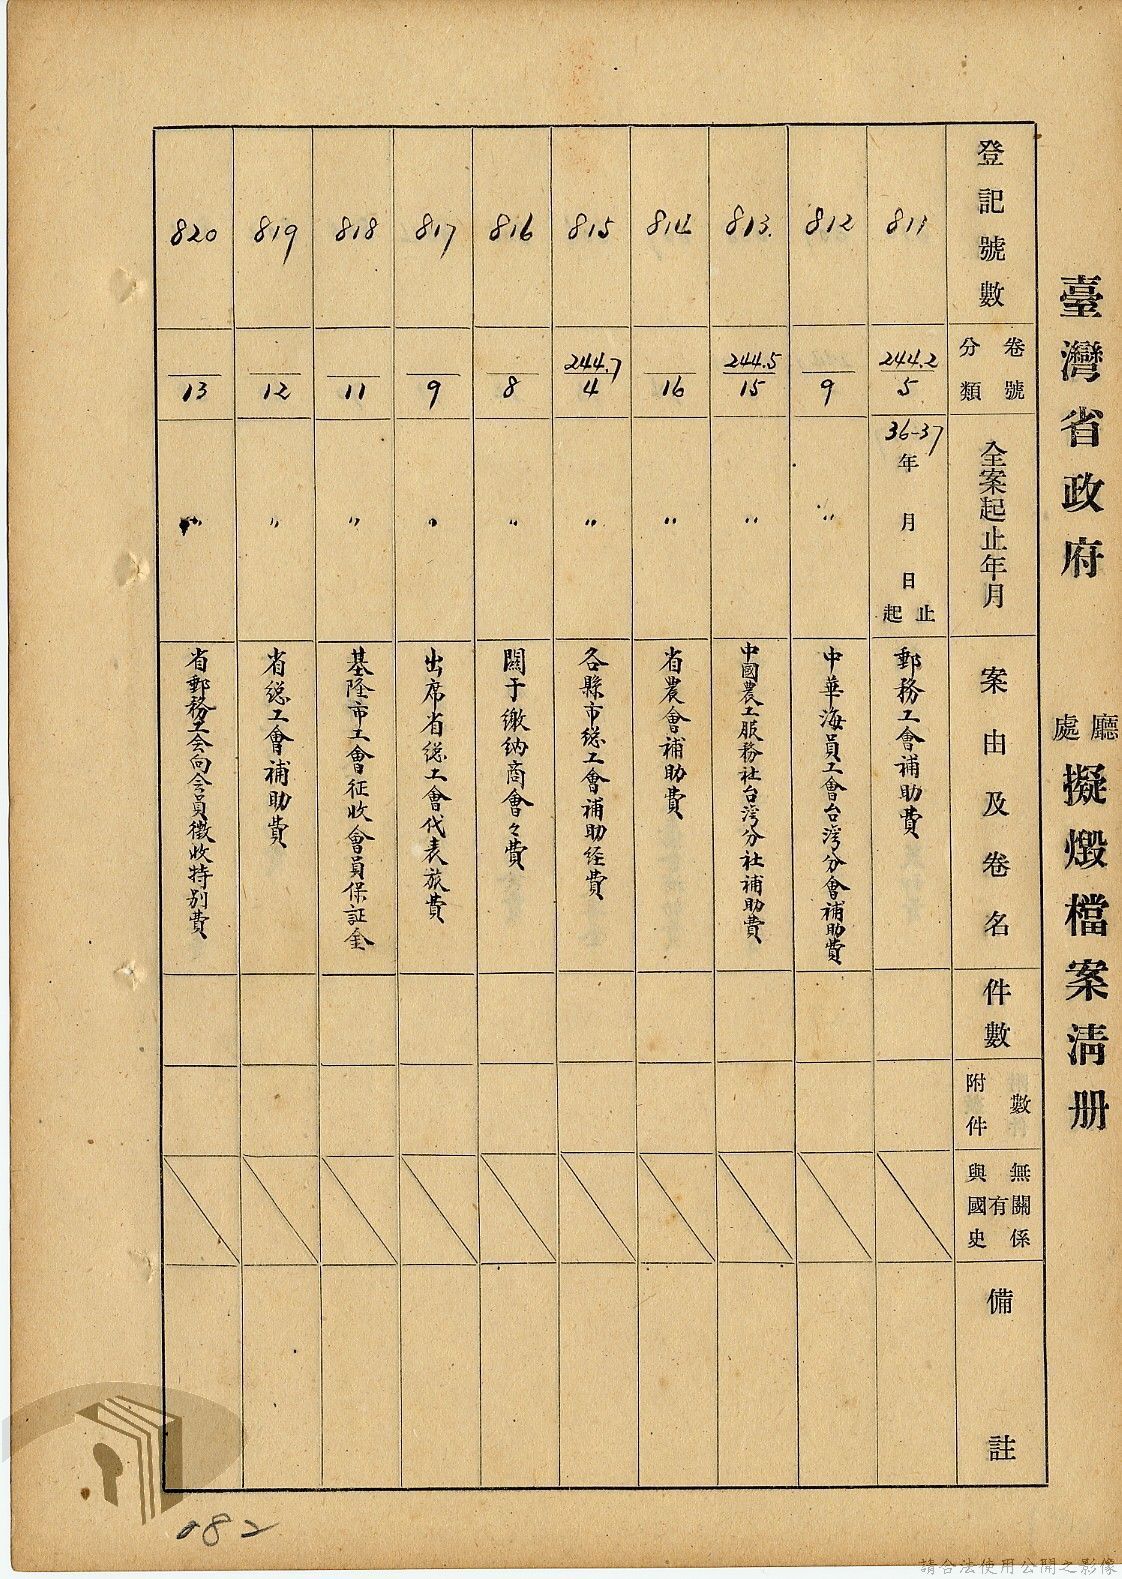 臺灣省政府 廳處 擬燬檔案淸册
登記號數
卷號
分類
全案起止年月
案由及卷名
件數
附件數
與國史有無關係
備註
811
244.2
5
36-37
年 月 日
起 止
郵務工會補助費
812
9
〃
中華海員工會台湾分會補助費
813.
244.5
15
〃
中國農工服務社台湾分社補助費
814
16
〃
省農會補助費
815
244.7
4
〃
各縣市総工會補助経費
816
8
〃
關于缴纳商會々費
817
9
〃
出席省総工會代表旅費
818
11
〃
基隆市工會征收會員保証金
819
12
〃
省総工會補助費
820
13
〃
省郵務工会向会員徵收特別費
082
請合法使用公開之影像